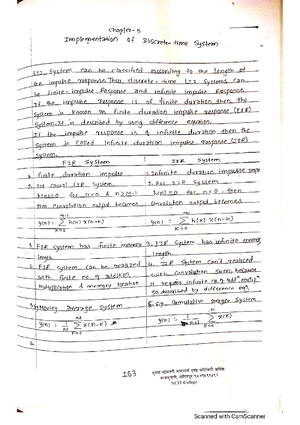 Chapter-5
Implementation of Discrete-time System
LTI System can be classified according to the length of
the impulse response. Thus, discrete-time LTI systems can
be finite-impulse Response and infinite impulse Response
If the impulse Response is of finite duration, then the
system is known as finite duration impulse response (FIR)
System. It is described by using difference equation.
If the impulse response is of infinite duration then the
System is called Infinite duration impulse response (IIR)
System.
FIR System
IIR System
1. Finite duration impulse
1. Infinite duration impulse
2. For causal FIR System
2. For IIR System
h(n)=0 for n<0 & n≥M
h(n)=0 for n<0, then
then convolution output becomes
Convolution output becomes
y(n) = Σ h(k) x(n-k)
y(n) = Σ h(k) x(n-k)
3. FIR system has finite memory
length.
3. IIR System has infinite
length.
4. FIR system can be realized
with finite no. of addition,
multiplication & memory location
4. IIR System can't realized
with convolution sum, because
it requires infinite no. of
so described by difference eqn.
Moving average System
5. Eg. Cumulative average System
y(n) = 1/M Σ x(n-k)
y(n) = 1/n+1 Σ x(k)
6.
163
NCIT College
Scanned with CamScanner